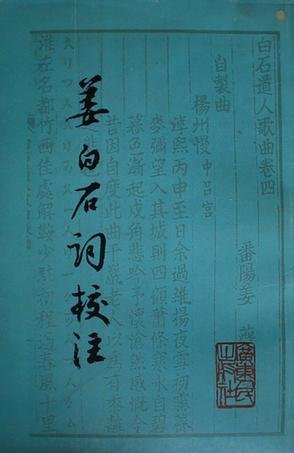 白石道人歌曲卷四
番陽姜
自製曲
楊州慢中呂宮
淳熙丙申至日余過維揚夜雪初霽薺
麥彌望入其城則四顧蕭條寒水自碧
暮色漸起戍角悲吟予懷愴然感慨今
昔因自度此曲千巖老人以為有黍離
淮左名都竹西佳處解鞍少駐初程過春風十里
姜白石詞校注
廣東人民出版社